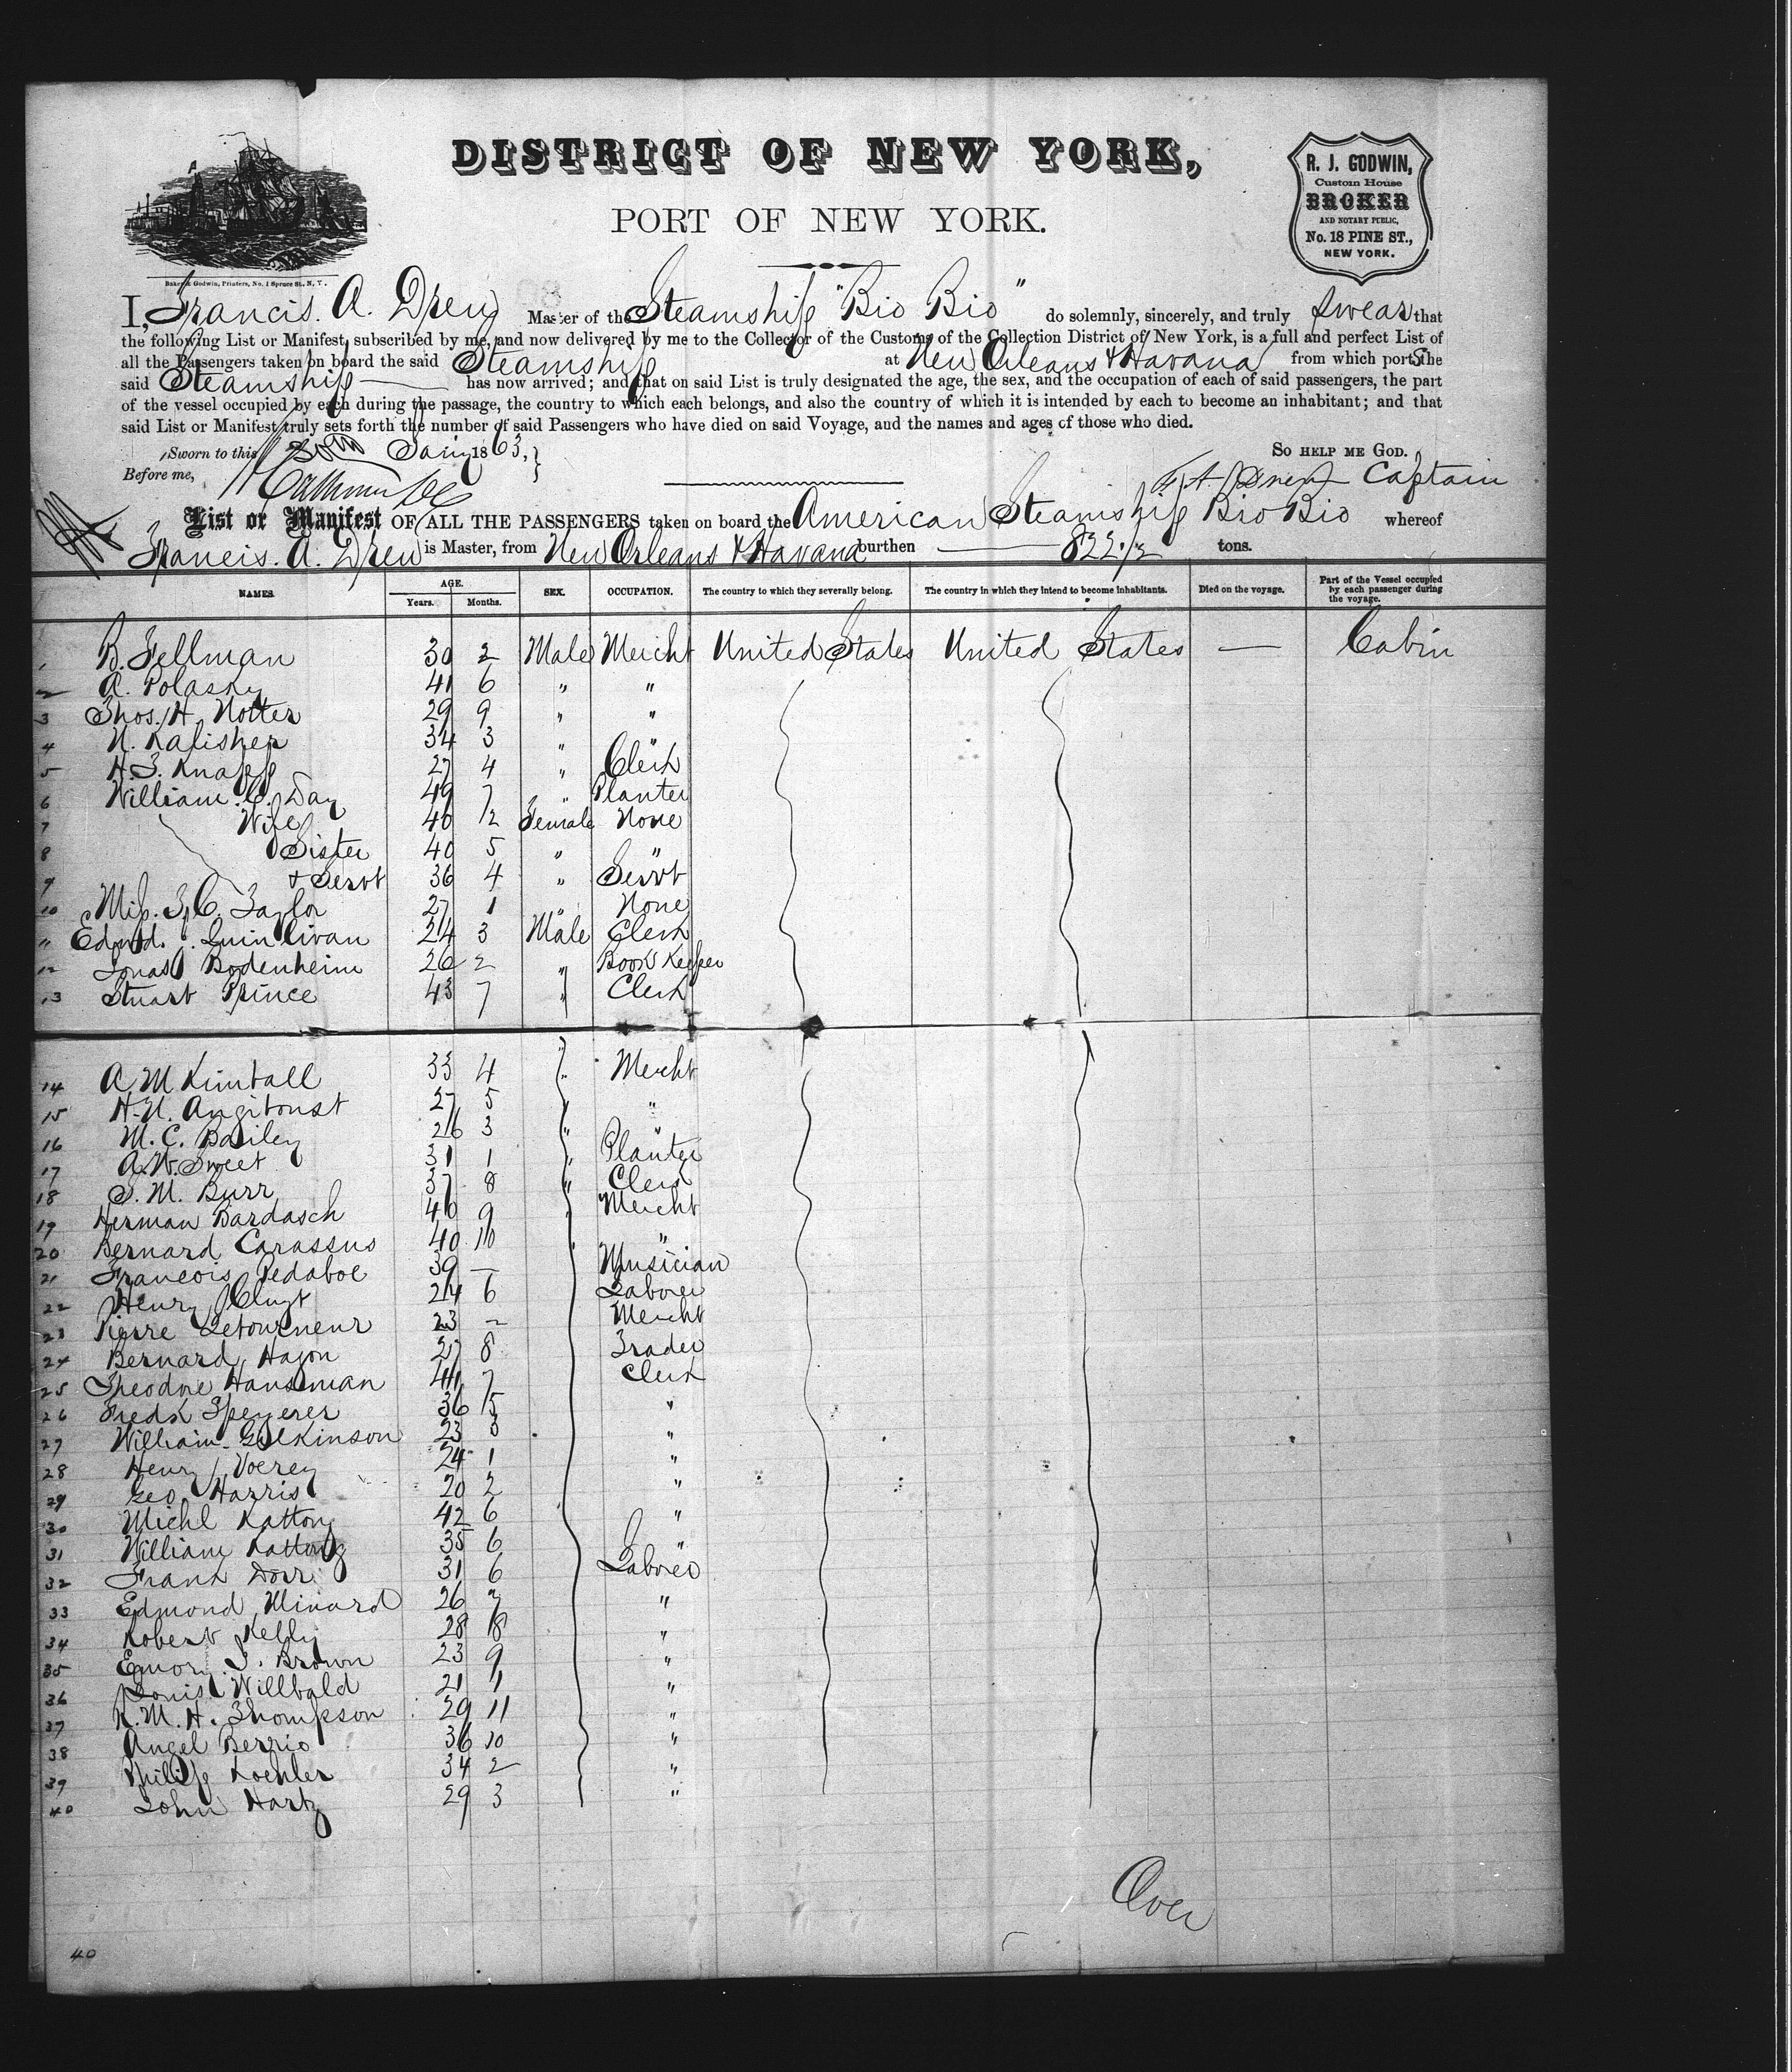 DISTRICT OF NEW YORK,
PORT OF NEW YORK.
R. J. GODWIN,
Custom House
BROKER
AND NOTARY PUBLIC,
No. 18 PINE ST.,
NEW YORK.
Baker & Godwin, Printers, No. 1 Spruce St., N. Y.
I, Francis. A. Drew Master of the Steamship "Bio Bio" do solemnly, sincerely, and truly swear that
the following List or Manifest, subscribed by me, and now delivered by me to the Collector of the Customs of the Collection District of New York, is a full and perfect List of
all the Passengers taken on board the said Steamship at New Orleans & Havana from which ports the
said Steamship has now arrived; and that on said List is truly designated the age, the sex, and the occupation of each of said passengers, the part
of the vessel occupied by each during the passage, the country to which each belongs, and also the country of which it is intended by each to become an inhabitant; and that
said List or Manifest truly sets forth the number of said Passengers who have died on said Voyage, and the names and ages of those who died.
Sworn to this 1863, SO HELP ME GOD.
Before me, F. A. Drew Captain
List or Manifest OF ALL THE PASSENGERS taken on board the American Steamship Bio Bio whereof
Francis. A. Drew is Master, from New Orleans & Havana burthen 822 1/2 tons.
NAMES. AGE. Years. Months. SEX. OCCUPATION. The country to which they severally belong. The country in which they intend to become inhabitants. Died on the voyage. Part of the Vessel occupied by each passenger during the voyage.
1 B. Fellman 30 2 Male Mercht United States United States — Cabin
2 A. Polasky 41 6 " "
3 Thos. H. Notter 29 9 " "
4 N. Kalisher 34 3 " "
5 H. T. Knapp 27 4 " Clerk
6 William. C. Day 49 7 " Planter
7 Wife 40 Female None
8 Sister 40 5 " "
9 & Servt 36 4 " Servt
10 Miss. T. C. Taylor 27 1 " None
" Edwd. Quinlivan 24 3 Male Clerk
12 Jonas Bodenheim 26 2 " Book Keeper
13 Stuart Prince 43 7 " Clerk
14 A M Kimball 33 4 " Mercht
15 H. N. 27 5 " "
16 M. C. Bailey 26 3 " "
17 A. W. Sweet 31 1 " Planter
18 S. M. Burr 37 8 " Clerk
19 Herman Bardasch 40 9 " Mercht
20 Bernard Carassus 40 10 " "
21 Francois Pedaboe 39 — Musician
22 Henry 24 6 Laborer
23 Pierre Letourneur 23 – Mercht
24 Bernard Hagon 27 8 Trader
25 Theodore Hausman 7 Clerk
26 Fredk Speyerer 36 5 "
27 William Gilkinson 23 3 "
28 Henry Voerey 24 1 "
29 Geo. Harris 20 2 "
30 Michl Kattong 42 6 "
31 William Kattong 35 6 "
32 Frank Dorr 31 6 Laborer
33 Edmond Minard 26 7 "
34 Robert Kelly 28 8 "
35 Emory S. Brown 23 9 "
36 Louis Willbald 21 "
37 K. M. H. Thompson 29 11 "
38 Angel Berrio 36 10 "
39 Philip Koehler 34 2 "
40 John Hartz 29 3 "
Over
40